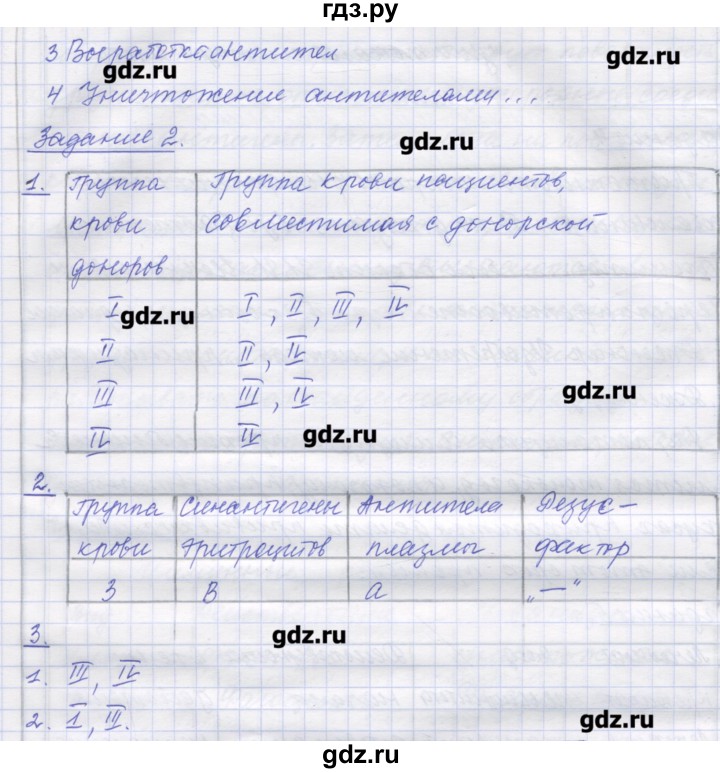 гдз.ру
3 Выработка антител
gdz.ru
gdz.ru
4 Уничтожение антителами...
Задание 2.
gdz.ru
1.
Группа крови доноров
Группа крови пациентов, совместимая с донорской
I
gdz.ru
I, II, III, IV
II
II, IV
III
III, IV
gdz.ru
IV
IV
gdz.ru
2.
Группа крови
Синантигены эритроцитов
Антитела плазмы
Резус-фактор
3
B
a
„—“
3.
gdz.ru
1. III, IV
2. I, III.
gdz.ru
gdz.ru